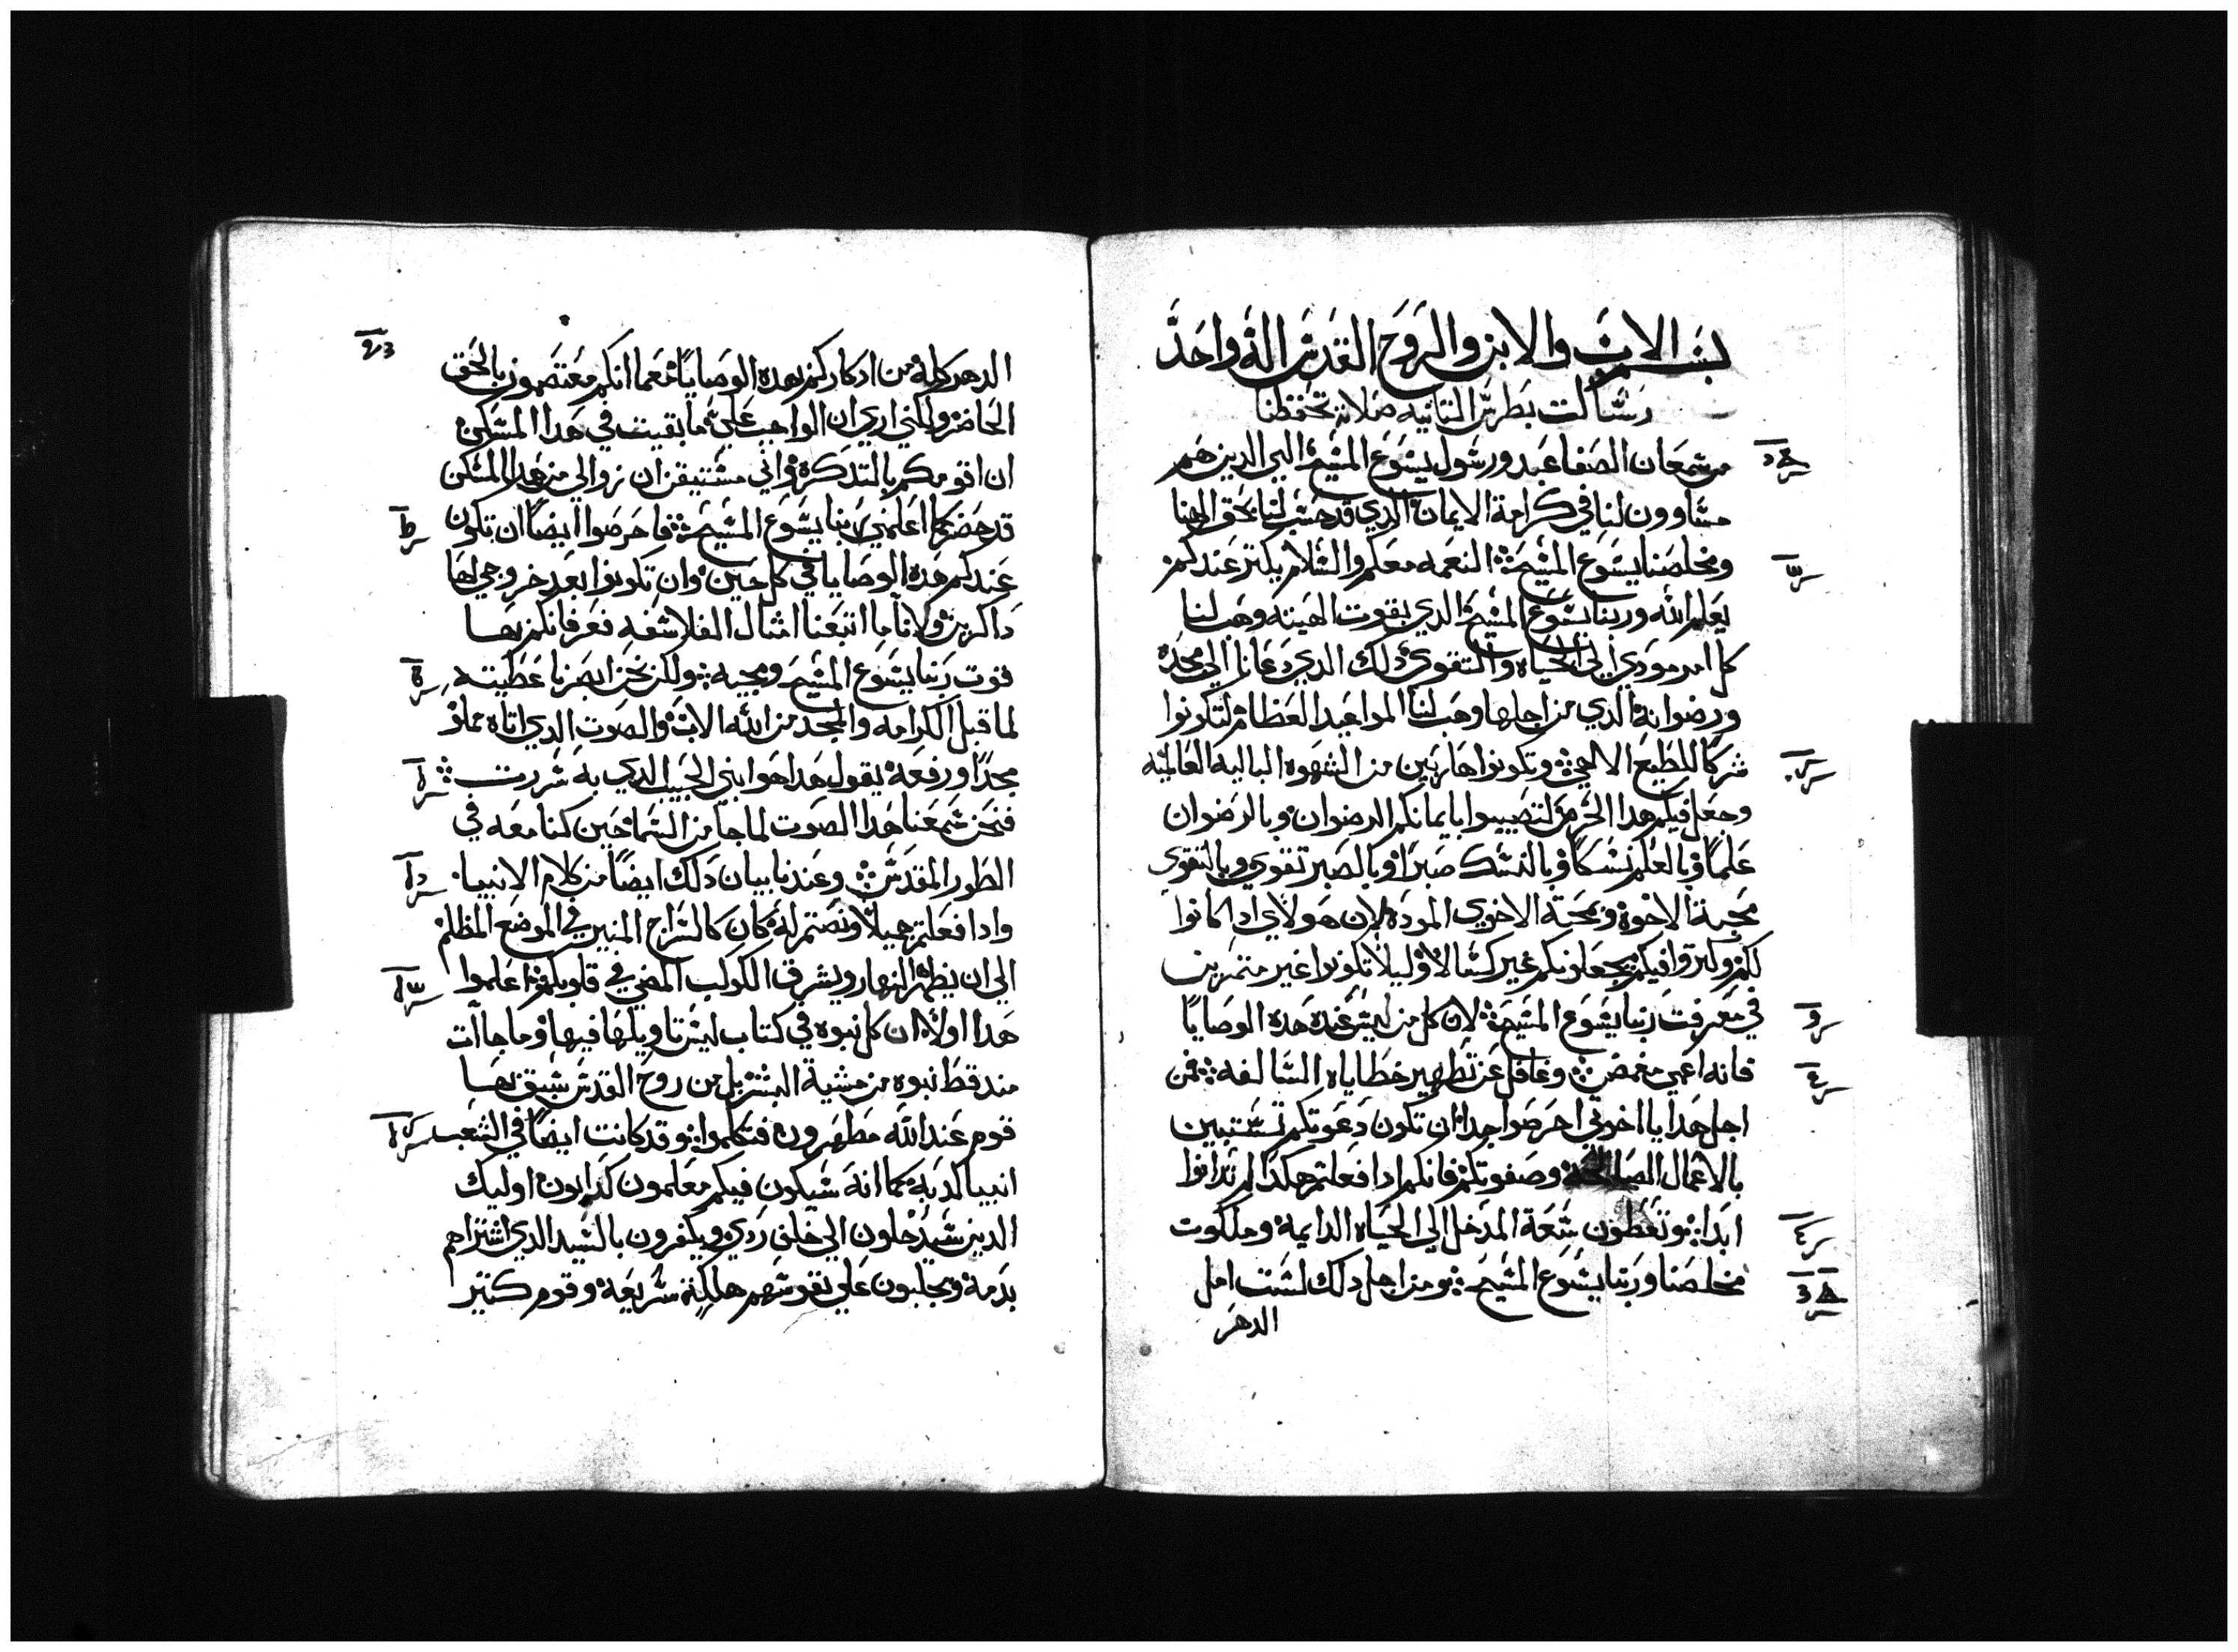 بسم الاب والابن والروح القدس اله واحد
رسالت بطرس التانيه صلاته تحفظنا
من سمعان الصفا عبد ورسول يسوع المسيح الي الدين هم
مساوون لنا في كرامة الايمان الدي قد حسب لنا بحق الهنا
ومخلصنا يسوع المسيح النعمه معكم والسلام يكتر عندكم
يعلم الله وربنا يسوع المسيح الدي بقوت الهيته وهب لنا
كل امر مودي الي الحياه والتقوي دلك الدي دعانا الي مجده
ورضوانه الدي من اجلها وهب لنا المواعيد العظام لتكونوا
شركا للطبع الالهي وتكونوا هاربين من الشهوه الباليه العالميه
وجعل فيكم هدا الحرص لتصيبوا بايمانكم الرضوان وبالرضوان
علما وبالعلم نسكا وبالنسك صبرا وبالصبر تقوي وبالتقوي
محبة الاخوه وبمحبة الاخوي الموده لان هولاي ادا كانوا
لكم وكتروا فيكم يجعلونكم غير كسالا ليلا تكونوا غير متمرين
في معرفت ربنا يسوع المسيح لان كل من ليس عنده هده الوصايا
فانه اعمي مغمض وغافل عن تطهير خطاياه السالفه فمن
اجل هدا يا اخوتي احرصوا جدا ان تكون دعوتكم تستبين
بالاعمال الصالحة وصفوتكم فانكم ادا فعلتم هكدا لم تدانوا
ابدا وتعطون سعة المدخل الي الحياه الدايمة وملكوت
مخلصنا وربنا يسوع المسيح ومن اجل دلك لست امل
الدهر
الدهر كله من ادكاركم بهده الوصايا نعما انكم معتصمون بالحق
الحاضر ولكني اري ان الواجب علي ما بقيت في هدا المسكن
ان اقومكم بالتدكرة واني مستيقن ان زوالي من هدا المسكن
قد حضر كما اعلمني ربنا يسوع المسيح فاحرصوا ايضا ان تكون
عندكم هده الوصايا في كل حين وان تكونوا بعد خروجي لها
داكرين ولانا ما اتبعنا امثال الفلاسفه فعرفانكم بها
قوت ربنا يسوع المسيح ومجيه ولكن نحن ابصرنا عظيته
لما قبل الكرامه والمجد من الله الاب والصوت الدي اتاه مملو
مجدا ورفعه يقول هدا هوا ابني الحبيب الدي به سررت
فنحن سمعنا هدا الصوت لما جا من السما حين كنا معه في
الطور المقدس وعندنا بيان دلك ايضا من كلام الانبيا
وادا فعلتم جميلا ونصتم له كان كالسراج المنير في الموضع المظلم
الي ان يظهر النهار ويشرق الكوكب المضي في قلوبكم اعلموا
هدا اولا ان كل نبوه في كتاب ليس تاويلها فيها وما جاات
مند قط نبوه من مشية البشر بل من روح القدس سبق بها
قوم عند الله مطهرون فتكلموا وقد كانت ايضا في الشعب
انبيا كدبه كما انه سيكون فيكم معلمون كدابون اوليك
الدين سيدخلون الي خلف ردي ويكفرون بالسيد الدي اشتراهم
بدمه ويجلبون علي نفوسهم هلكة سريعه وقوم كتير